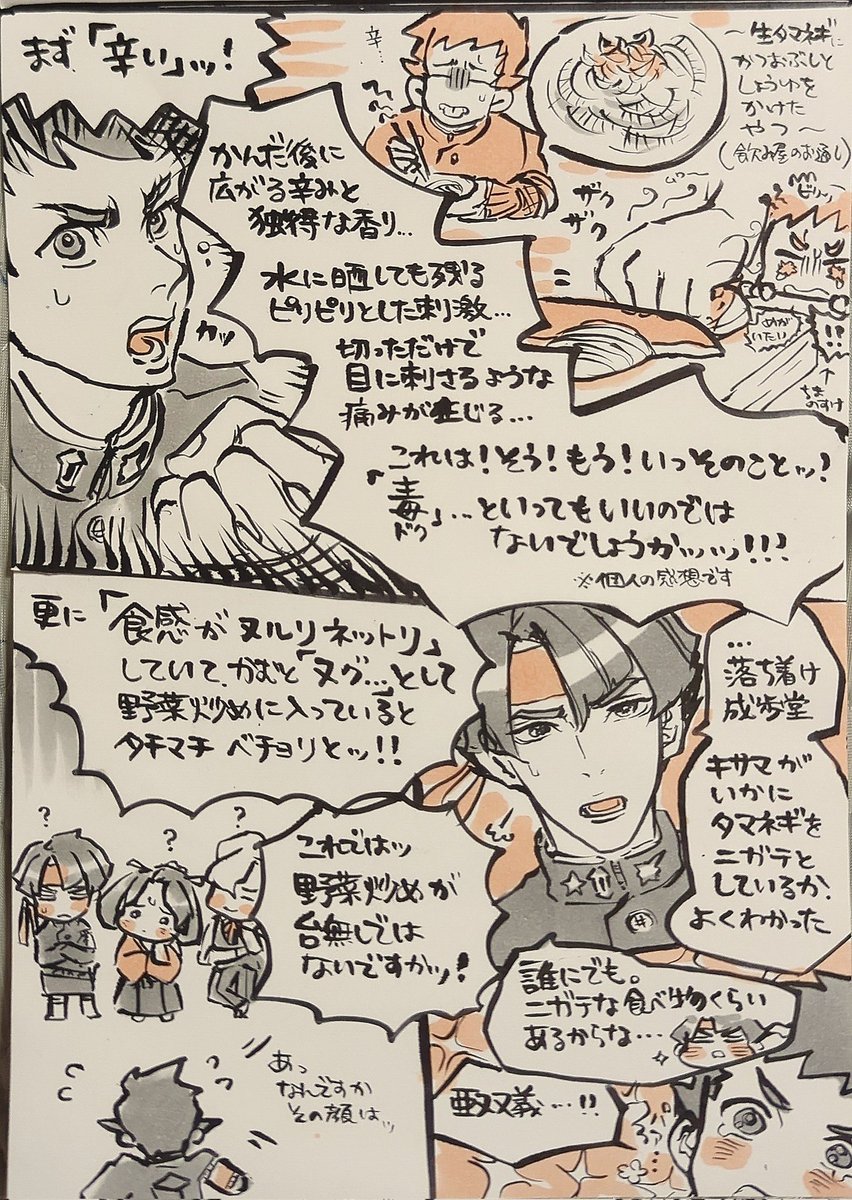 まず、「辛い」ッ！
辛…
～生タマネギに
かつおぶしと
しょうゆを
かけた
やつ～
（飲み屋のお通し）
かんだ後に
広がる辛みと
独得な香り…
ザク
ザク
「めが
いたい」
!!
水に晒しても残る
ピリピリとした刺激…
カッ
切っただけで
目に刺さるような
痛みが生じる…
これは！そう！もう！いっそのことッ？
「毒」…といってもいいのでは
ドク
ないでしょうかッッッ!!!
※個人の感想です
更に「食感がヌルリネットリ」
していて、かむと「ヌグ…」として
野菜炒めに入っていると
タチマチ ベチョリとッ!!
…
落ち着け
成歩堂
キサマが
いかに
タマネギを
ニガテと
しているか、
よくわかった
?
?
?
これではッ
野菜炒めが
台無しでは
ないですかッ！
誰にでも。
ニガテな食べ物くらい
あるからな…
あっ
なんですか
その顔はッ
亜双義…!!